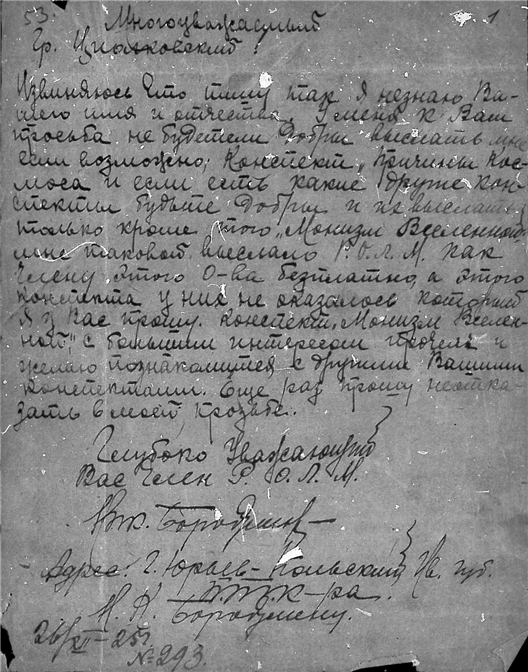 53. 1
Многоуважаемый
Гр. Циолковский!
Извиняюсь что пишу так я незнаю Ва-
шего имя и отчества, У меня к Вам
просьба не будетели Добры выслать мне
если возможно, Конспект, Причины Кос-
моса и если есть какие друже кон-
спекты будьте добры и их выслать,
только кроме того „Монизм Вселенной"
мне таковой выслало Р.О.Л.М. как
Члену этого О-ва безплатно, а этого
конспекта у них не оказалось который
я у Вас прошу. Конспект, „Монизм Вселен-
ной" с большим интересом прочел и
желаю познакомится с другими Вашими
конспектами. Еще раз прошу неотка-
зать в моей прозьбе.
Глубоко Уважающий
Вас Член Р. О. Л. М.
Адрес: Г. Юрьев-Польский Ив. губ.
Н. К.
26/XI-25г.
№293.